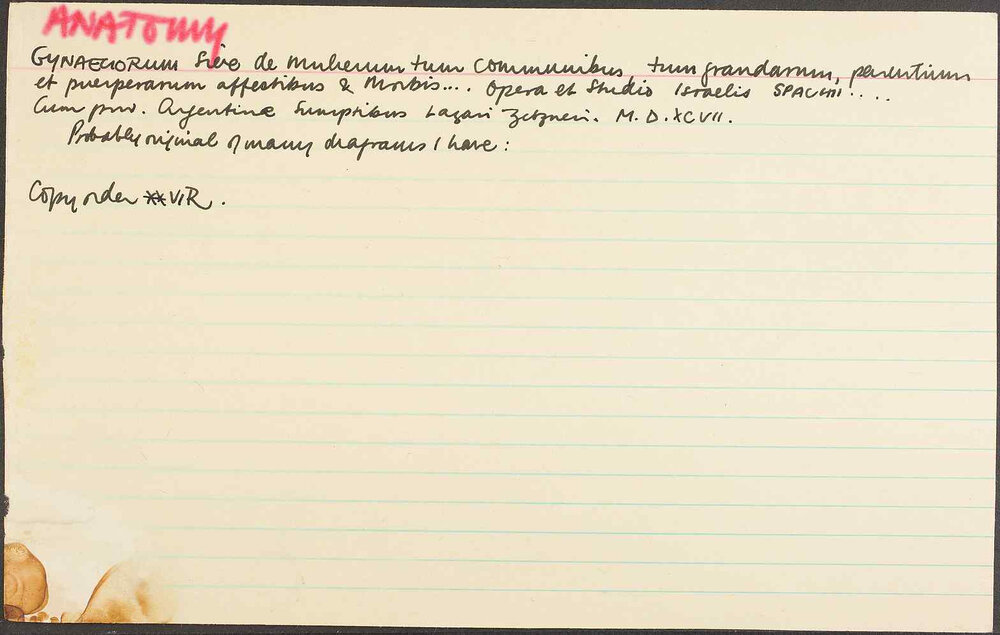 ANATOMY
GYNAECIORUM Sive de Mulierum tum communibus, tum grandarum, parientium
et puerperarum affectibus & Morbis.... Opera et Studio Israelis SPACHII....
Cum priv. Argentinæ Sumptibus Lazari Zetzneri. M.D.XCVII.
Probably original of many diagrams I have:
Copy order VIR.